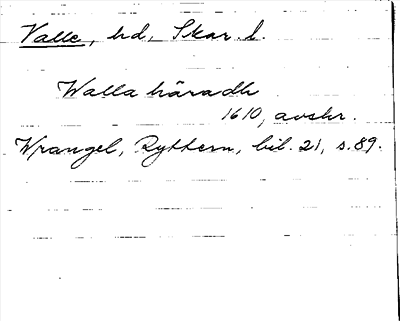 Valle, hd, Skar. l.
Walla häradh
1610, avskr.
Wrangel, Ryttern, bil. 21, s. 89.